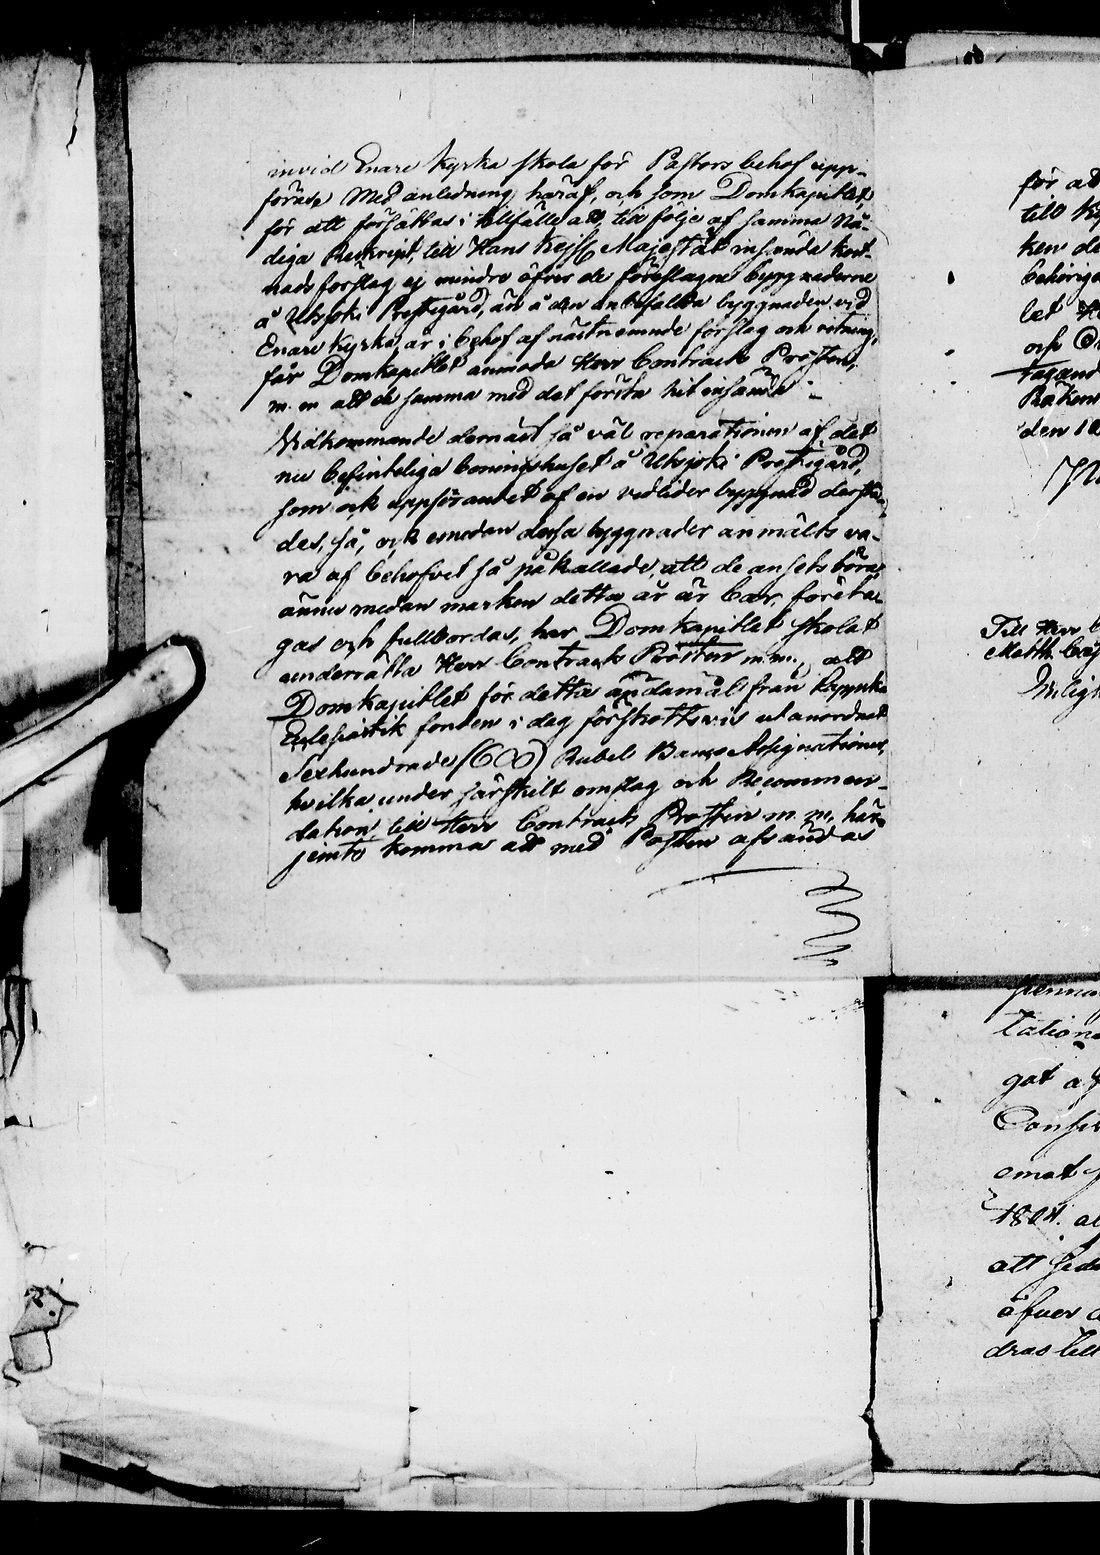 invid Enare Kyrka skola för Pastors behof upp-
föras Med anledning häraf, och som Domkapitlet,
för att försättas i tillfälle att till följe af samma Nå-
diga Reskript, till Hans Kejs Majestät insända kost-
nads förslag ej mindre öfver de föreslagne byggnaderne
å Utsjoki Prestegård, än å den anbefallda byggnaden vid
Enare Kyrka, är i behof af nästnämnde förslag och ritning,
får Domkapitlet anmoda Herr Contracts Prosten,
m. m att de samma med det första hit insända
Vidkommande dernäst så väl reparationen af det
nu befinteliga boningshuset å Utsjoki Prestegård,
som ock uppförandet af en vedlider byggnad derstä-
des, så, och emedan dessa byggnader anmälts va-
ra af behofvet så påkallade, att de ansets böra
ännu medan marken detta år är bar, företa-
gas och fullbordas, har Domkapitlet skolat
underrätta Herr Contracts Prosten m.m., att
Domkapitlet för detta ändamål från Lappska
Eclesiastik fonden i dag förskottsvis utanordnat
Sexhundrade (600) Rubel Banco Assignationer,
hvilka under särskilt omslag och Recommen-
dation, till Herr Contracts Prosten m. m. här
jemte komma att med Posten afsändas
för at
till Ky
ken de
behörige
let H
och
den 18
Till Herr
Matth. Cas
tation
got af
emot
1804. al
att
öfver
dras till